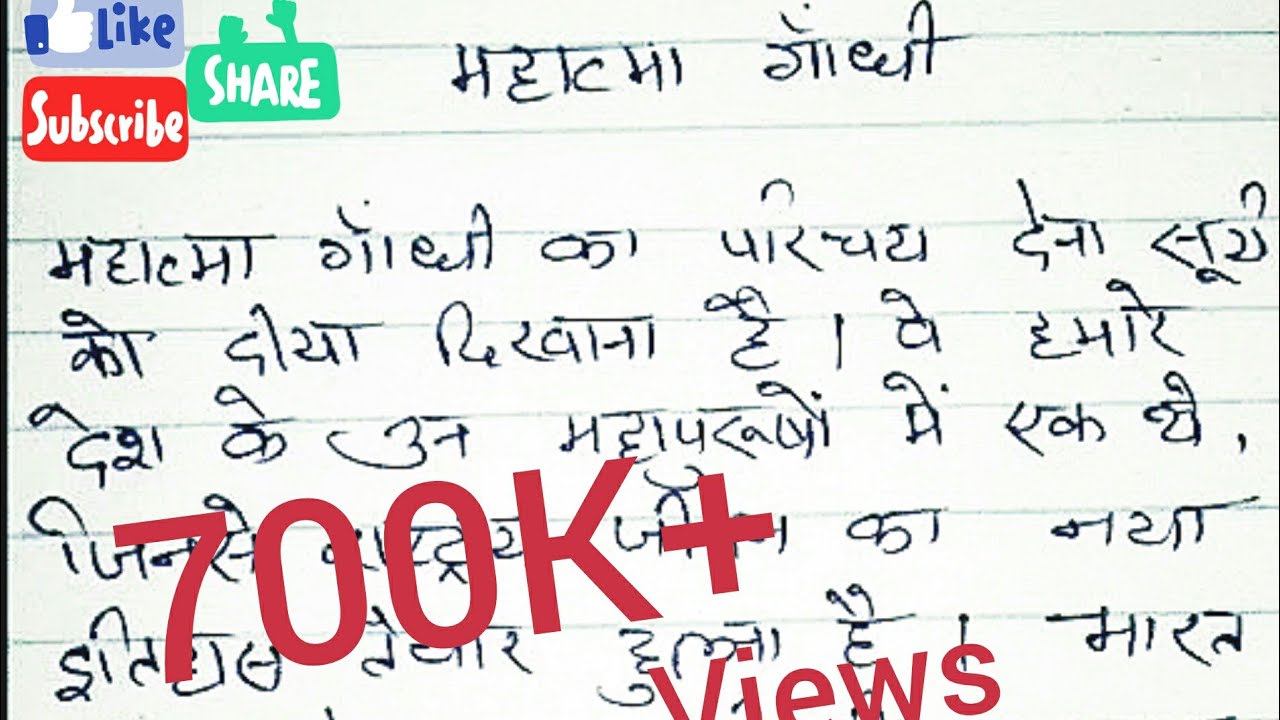 Like
SHARE
Subscribe
महात्मा गाँधी
महात्मा गाँधी का परिचय देना सूर्य
को दीया दिखाना है । वे हमारे
देश के उन महापुरूषों में एक थे ,
जिनसे राष्ट्रीय जीवन का नया
इतिहास तैयार हुआ है । भारत
700K+
Views